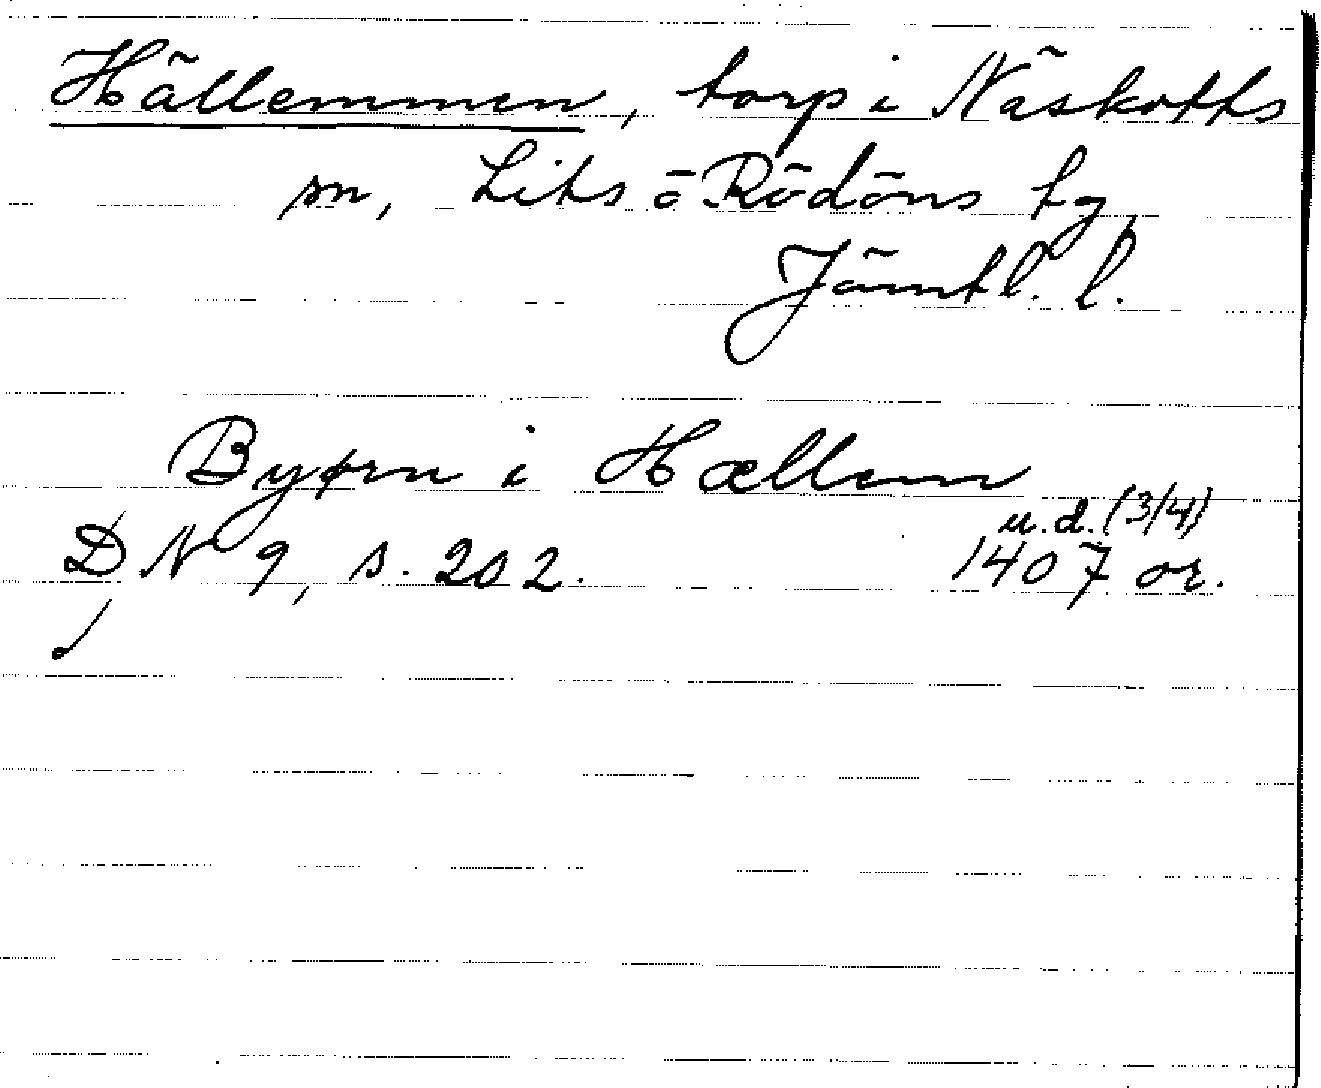 Hällemmen, torp i Näskotts
sn, Lits o Rödöns tg,
Jämtl. l.
Byørn i Hællem
u.d. (3/4)
DN 9, s. 202. 1407 or.